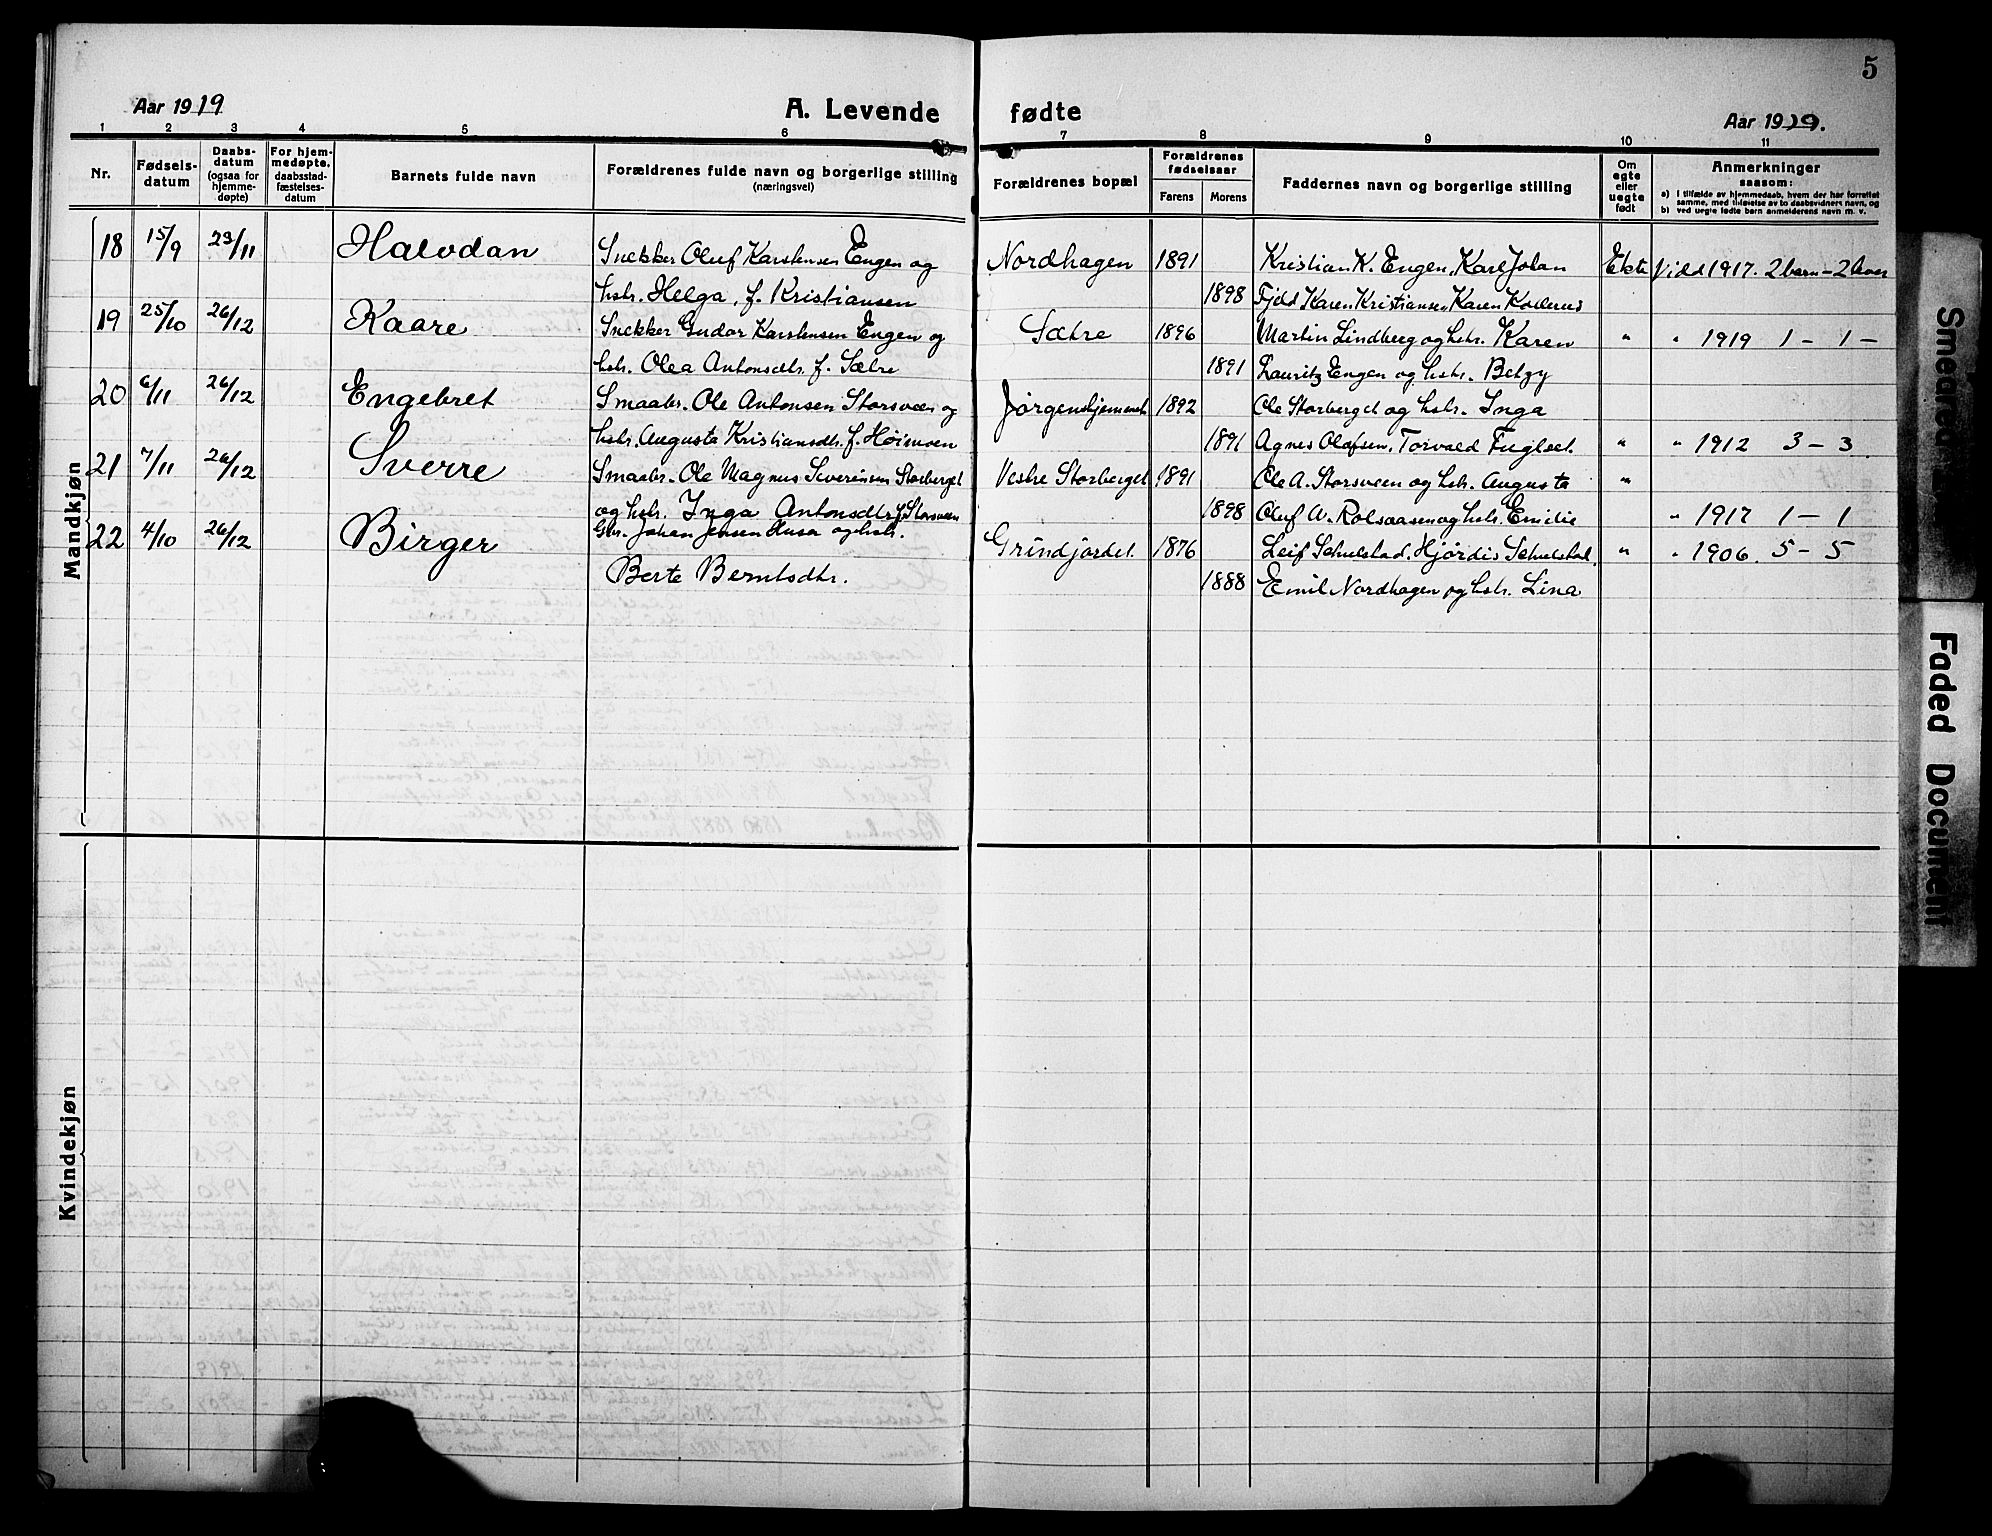 5
Aar 1919
A. Levende
fødte
Aar 1919.
1 2 3 4 5 6 7 8 9 10 11
Nr.
Fødsels-
datum
Daabs-
datum
(ogsaa for
hjemme-
døpte)
For hjem-
medøpte.
daabsstad-
fæstelses-
datum
Barnets fulde navn
Forældrenes fulde navn og borgerlige stilling
(næringsvei)
Forældrenes bopæl
Forældrenes
fødselsaar
Farens Morens
Faddernes navn og borgerlige stilling
Om
egte
eller
uegte
født
Anmerkninger
saasom:
a) I tilfælde av hjemmedaab, hvem der har forrettet
samme, med tilføielse av to daabsvidners navn, og
b) ved uegte fødte barn anmelderens navn m. v.
Mandkjøn
18 15/9 23/11 Halvdan Snekker Oluf Karstensen Engen og Nordhagen 1891 Kristian K. Engen, Karl Johan Ekte Vidd 1917. 2 barn - 2 lever
hstr. Helga, f. Kristiansen 1898 Fjeld Karen Kristiansen, Karen
19 25/10 26/12 Kaare Snekker Gudor Karstensen Engen og Sætre 1896 Martin Lindberg og hstr. Karen " " 1919 1 - 1 -
hstr. Olea Antonsdtr. f. Sætre 1891 Lauritz Engen og hstr. Betzy
20 6/11 26/12 Engebret Smaabr. Ole Antonsen Storsveen og Jørgenshjemmet 1892 Ole Storberget og hstr. Inga
hstr. Augusta Kristiansdtr. f. Høimoen 1891 Agnes Olafsen, Torvald Fuglset. " " 1912 3 - 3
21 7/11 26/12 Sverre Smaabr. Ole Magnus Severinsen Storberget Vestre Storberget 1891 Ole A. Storsveen og hstr. Augusta "
og hstr. Inga Antonsdtr f. Storsveen 1898 Oluf A. Rolsaasen og hstr. Emilie " 1917 1 - 1
22 4/10 26/12 Birger Gbr. Johan Jensen Husa og hstr. Grindjordet. 1876 Leif Schulstad. Hjørdis Schulstad. " " 1906. 5 - 5
Berte Berntsdtr. 1888 Emil Nordhagen og hstr. Lina
Kvindekjøn
Smearede
Faded Document